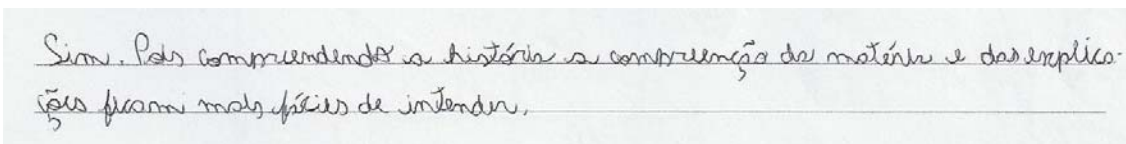 Sim. Pois compreendendo a história a compreenção da matéria e das explica-
ções ficam mais fácies de intender.